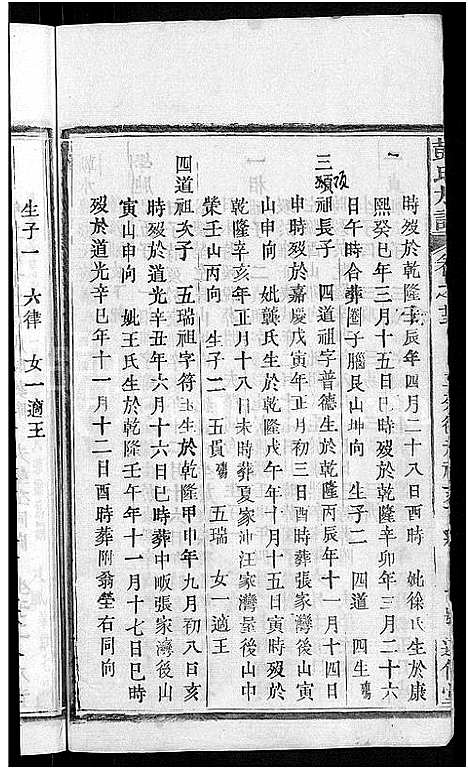 時歿於乾隆壬辰年四月二十八日酉時　妣徐氏生於康
熙癸巳年三月十五日巳時歿於乾隆辛卯年三月二十六
日午時合葬圈子腦艮山坤向　生子二　四道　四生殤
三頌祖長子　四道祖字普德生於乾隆丙辰年十一月十四日
申時歿於嘉慶戊寅年正月初三日酉時葬張家灣後山寅
山申向　妣龔氏生於乾隆戊午年十月十五日寅時歿於
乾隆辛亥年正月十八日未時葬夏家沖汪家灣屋後山中
榮壬山丙向　生子二　五貫殤　五瑞　女一適王
四道祖次子　五瑞祖字符玉生於乾隆甲申年九月初八日亥
時歿於道光辛丑年六月十六日巳時葬中畈張家灣後山
寅山申向　妣王氏生於乾隆壬午年十一月十七日巳時
歿於道光辛巳年十一月十二日酉時葬附翁塋右同向
生子一　六律　女一適王